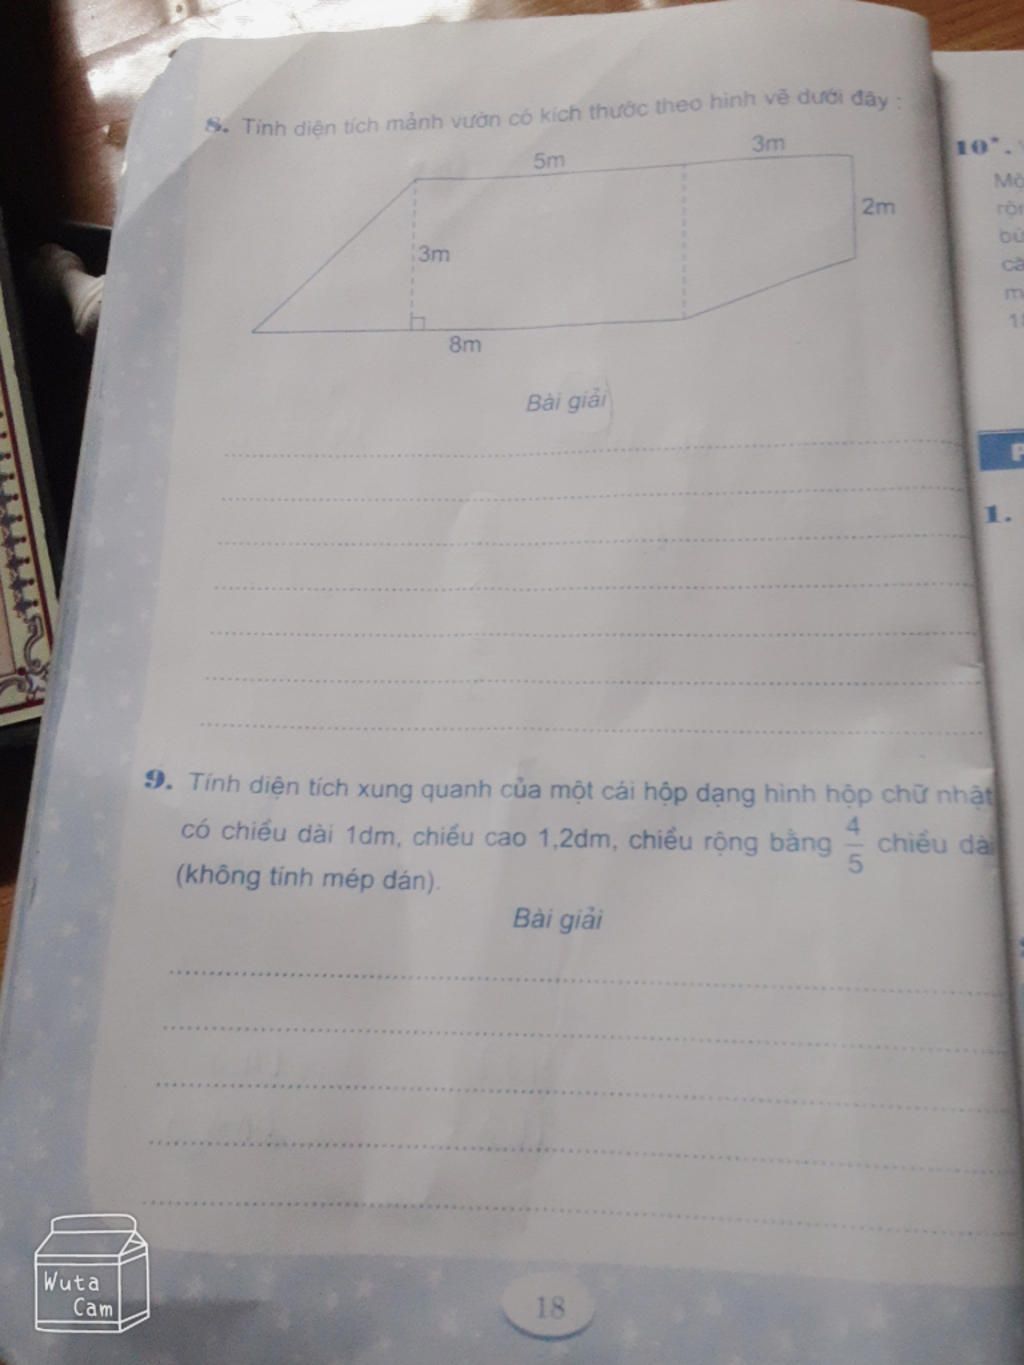 8. Tính diện tích mảnh vườn có kích thước theo hình vẽ dưới đây :
5m
3m
2m
3m
8m
Bài giải
9. Tính diện tích xung quanh của một cái hộp dạng hình hộp chữ nhật
có chiều dài 1dm, chiều cao 1,2dm, chiều rộng bằng 4/5 chiều dài
(không tính mép dán).
Bài giải
18
10*.
1.
Wuta
Cam